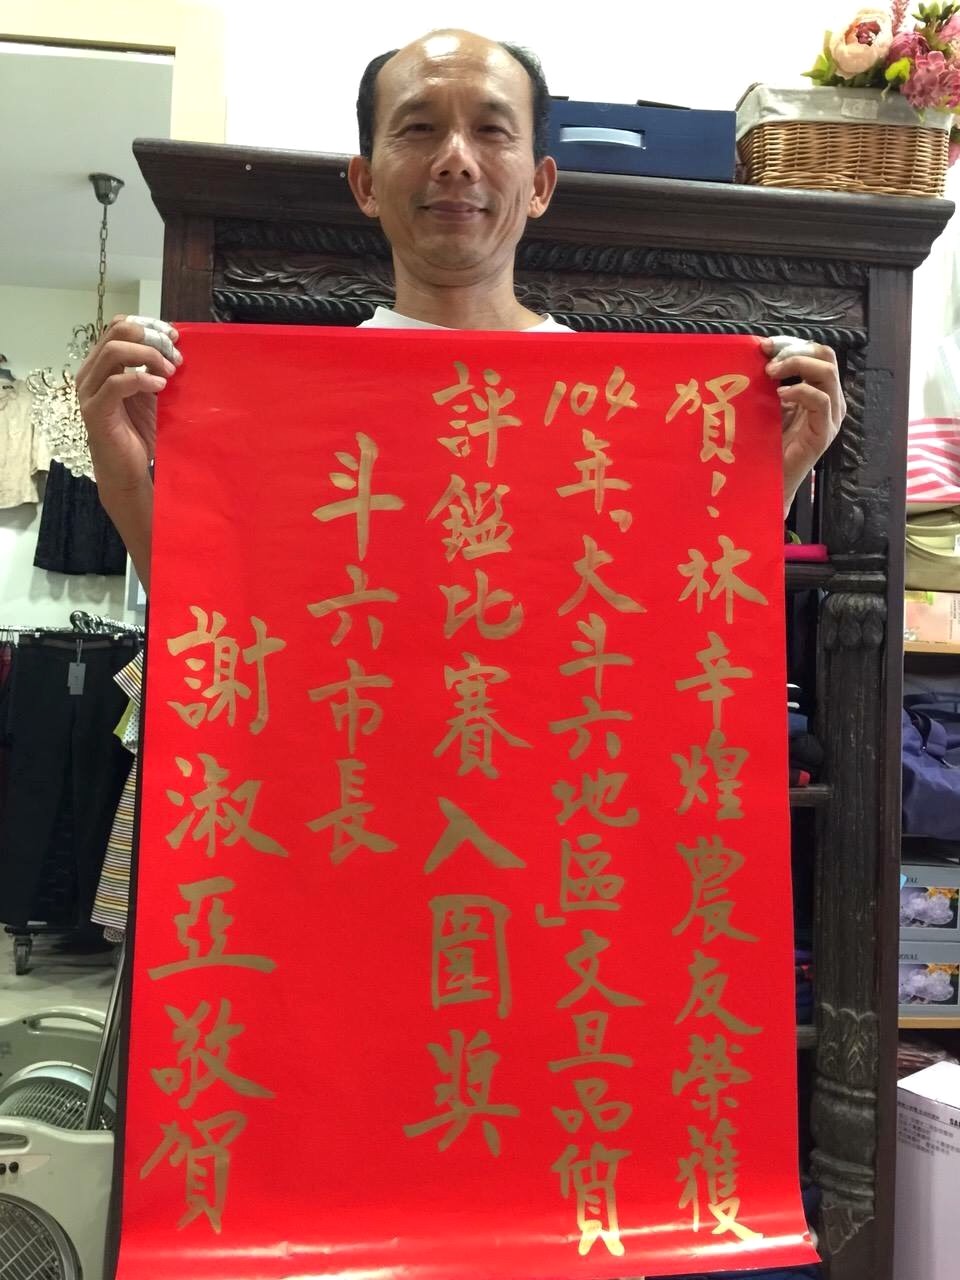 賀！林辛煌農友榮獲
104年「大斗六地區」文旦品質
評鑑比賽入圍獎
斗六市長
謝淑亞敬賀